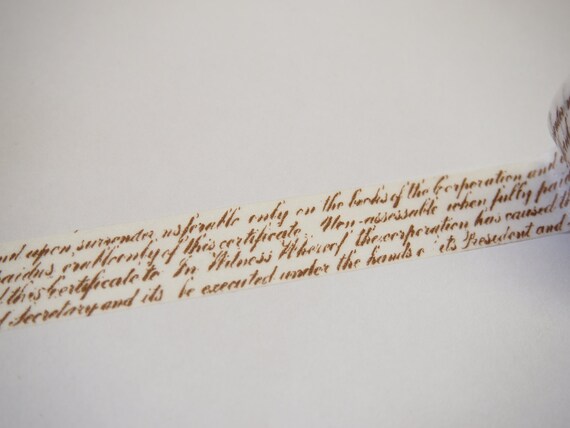 and upon, surrender, nsferable only on the books of the Corporation and
paidns, erableonly of this certificate. Non-assessable when fully paid
this Certificate to In Witness Whereof the corporation has caused th
Secretary and its be executed under the hands o its President and